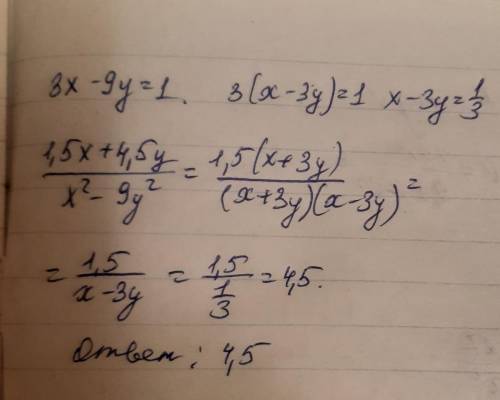 3x - 9y = 1. 3(x - 3y) = 1 x - 3y = 1/3
(1,5x + 4,5y)/(x² - 9y²) = 1,5(x + 3y)/((x + 3y)(x - 3y)) =
= 1,5/(x - 3y) = 1,5/(1/3) = 4,5.
Ответ: 4,5